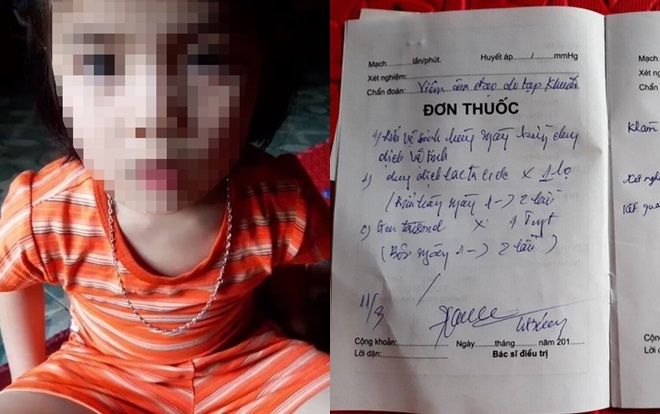 Mạch..........lần/phút. Huyết áp....../......mmHg
Xét nghiệm:
Chẩn đoán: Viêm âm đạo do tạp khuẩn
ĐƠN THUỐC
vệ sinh hàng ngày bằng dung
dịch vệ sinh
1) dung dịch lactacide x 1 lọ
ngày 1 -> 2 lần
2) x 1 Tuýp
(Bôi ngày 1 -> 2 lần)
11/3
Cộng khoản: Ngày......tháng......năm 201....
Lời dặn: Bác sĩ điều trị
Khám
Xét ngh
Kết quả
Cộng kho
Lời dặn: